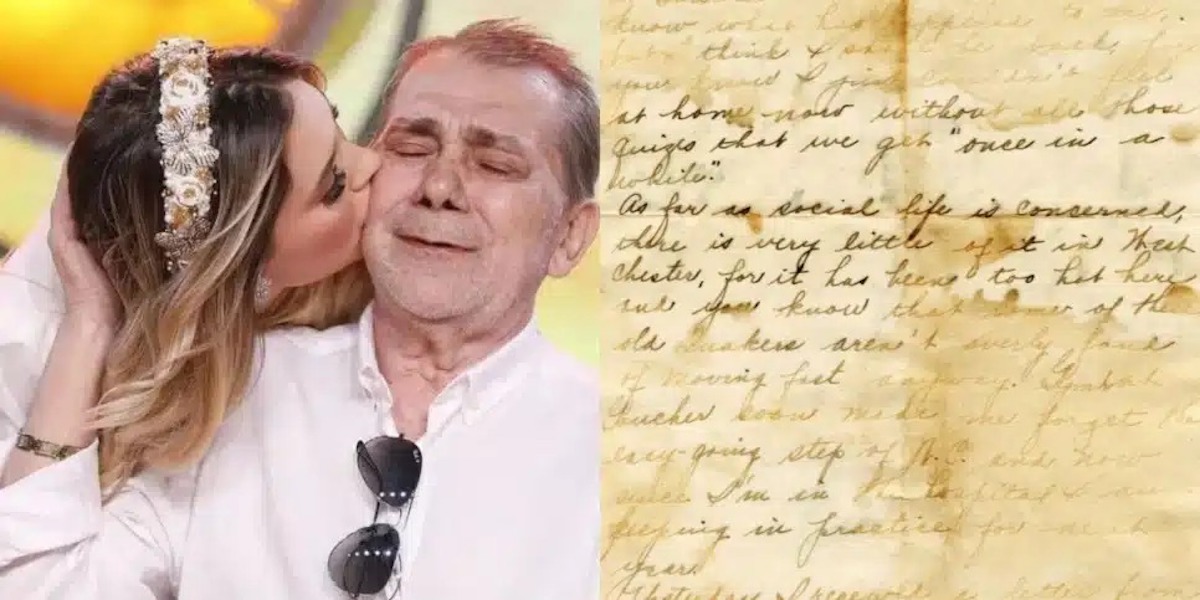 know what has happened to me,
think I
you
at home now without all those
quizes that we get "once in a
while".
As far as social life is concerned,
there is very little of it in West
Chester, for it has been too hot here
and you know that some of the
old Quakers aren't overly fond
of moving fast anyway.
soon made me forget the
easy-going step of N.C. and now
since I'm in the hospital I am
keeping in practice for next
year.
Yesterday I received a letter from